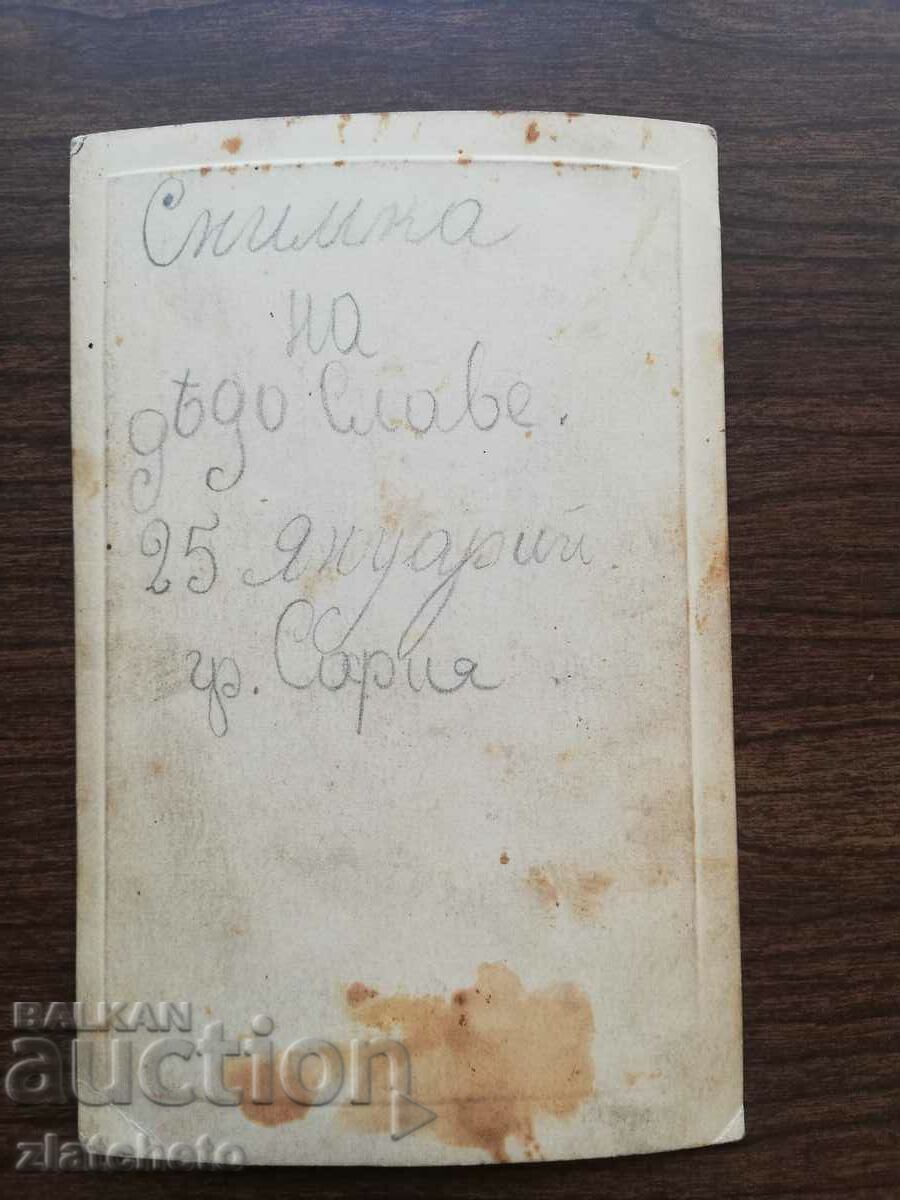 Снимка
на
дѣдо Славе.
25 Януарий.
гр. София
BALKAN
auction
zlatcheto